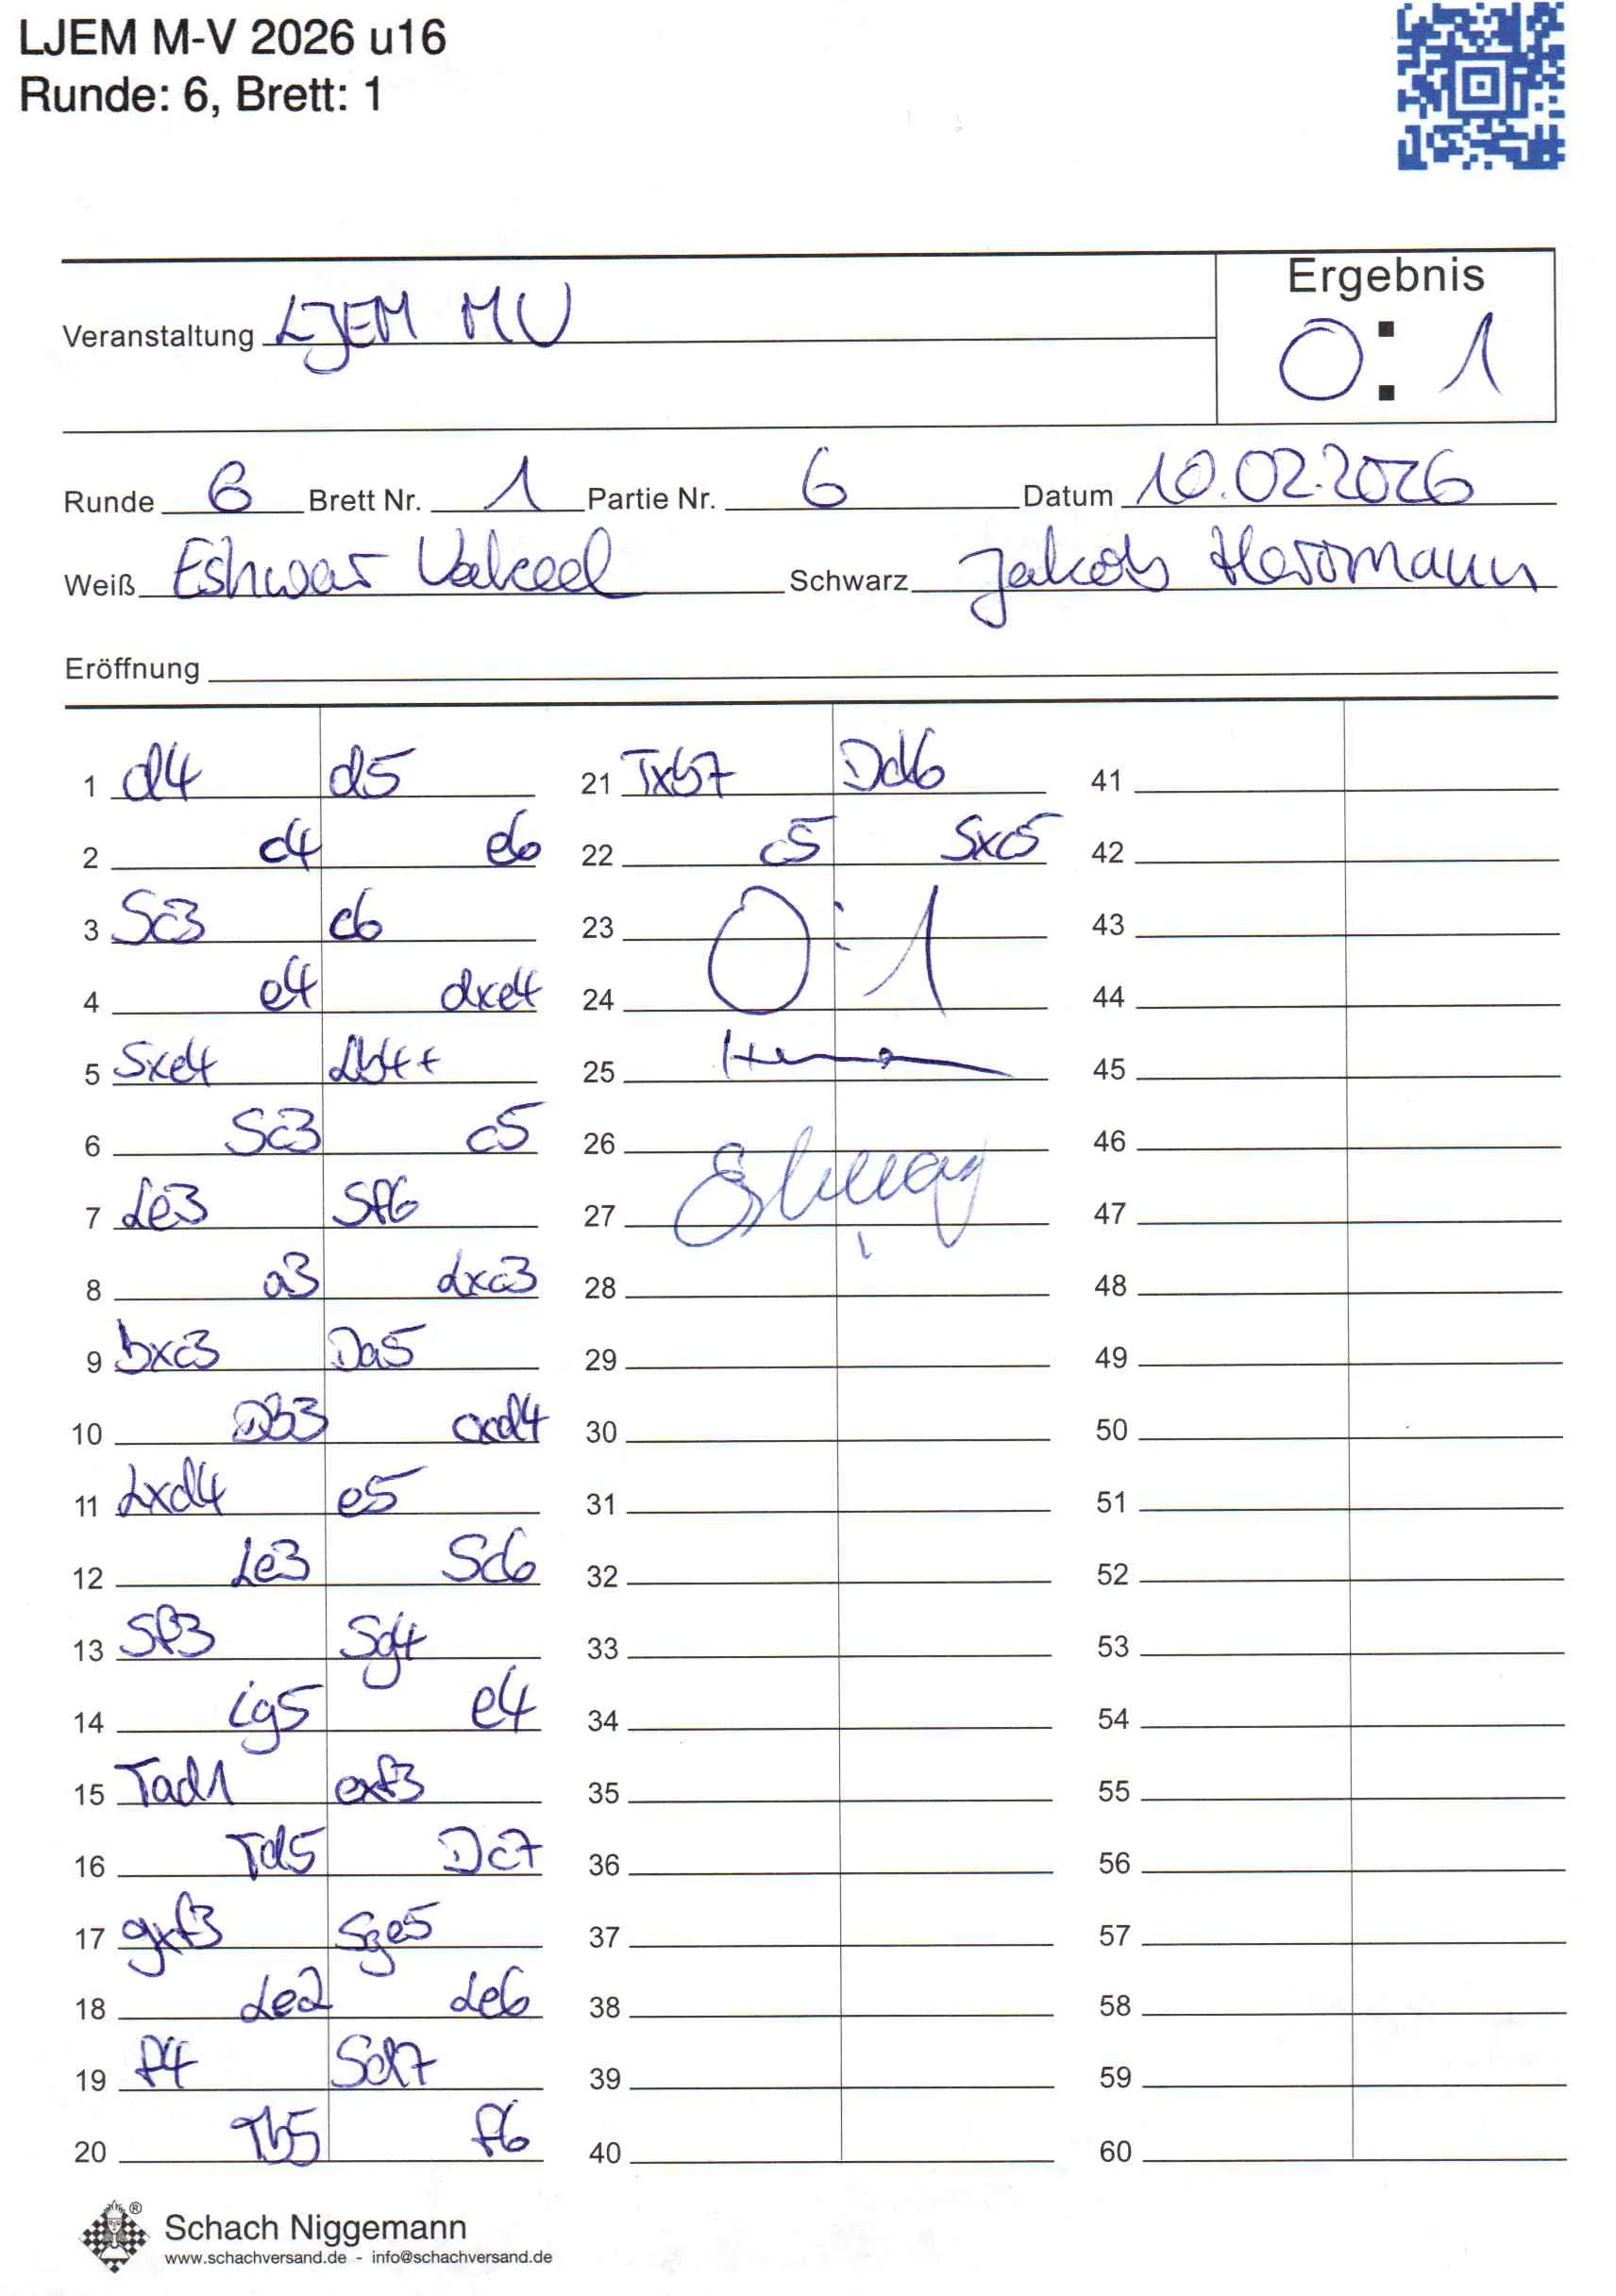 LJEM M-V 2026 u16
Runde: 6, Brett: 1
Ergebnis
Veranstaltung LJEM MV 0:1
Runde 6 Brett Nr. 1 Partie Nr. 6 Datum 10.02.2026
Weiß Eshwar Vakeel Schwarz Jakob Herrmann
Eröffnung
1 d4 d5 21 Txb7 Dd6 41
2 c4 e6 22 c5 Sxc5 42
3 Sc3 c6 23 0:1 43
4 e4 dxe4 24 44
5 Sxe4 Lb4+ 25 45
6 Sc3 c5 26 46
7 Le3 Sf6 27 47
8 a3 Lxc3 28 48
9 bxc3 Da5 29 49
10 Db3 cxd4 30 50
11 Lxd4 e5 31 51
12 Le3 Sc6 32 52
13 Sf3 Sg4 33 53
14 Lg5 e4 34 54
15 Tad1 exf3 35 55
16 Td5 Dc7 36 56
17 gxf3 Sge5 37 57
18 Le2 Le6 38 58
19 f4 Sd7 39 59
20 Tb5 f6 40 60
Schach Niggemann
www.schachversand.de - info@schachversand.de